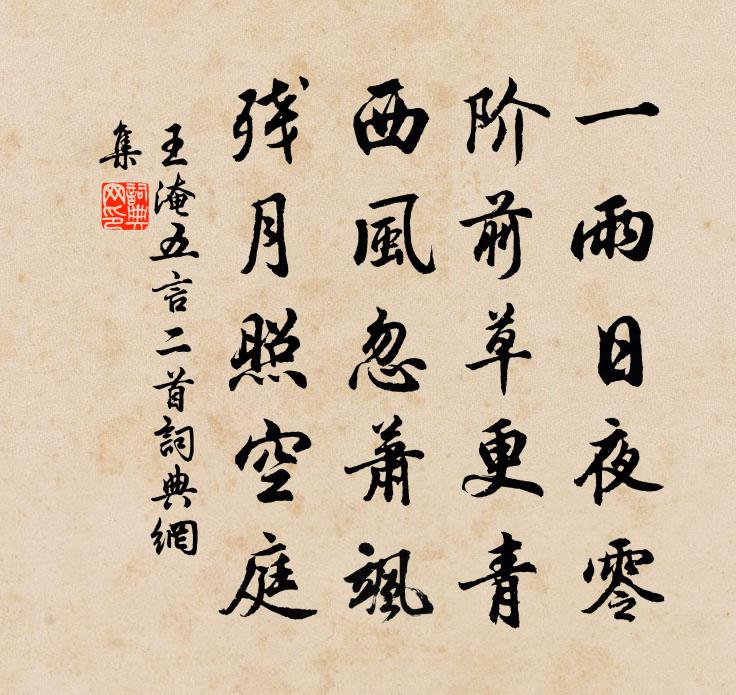 一雨日夜零
阶前草更青
西風忽蕭颯
残月照空庭
王淹五言二首詞典網
集
詞典
网印